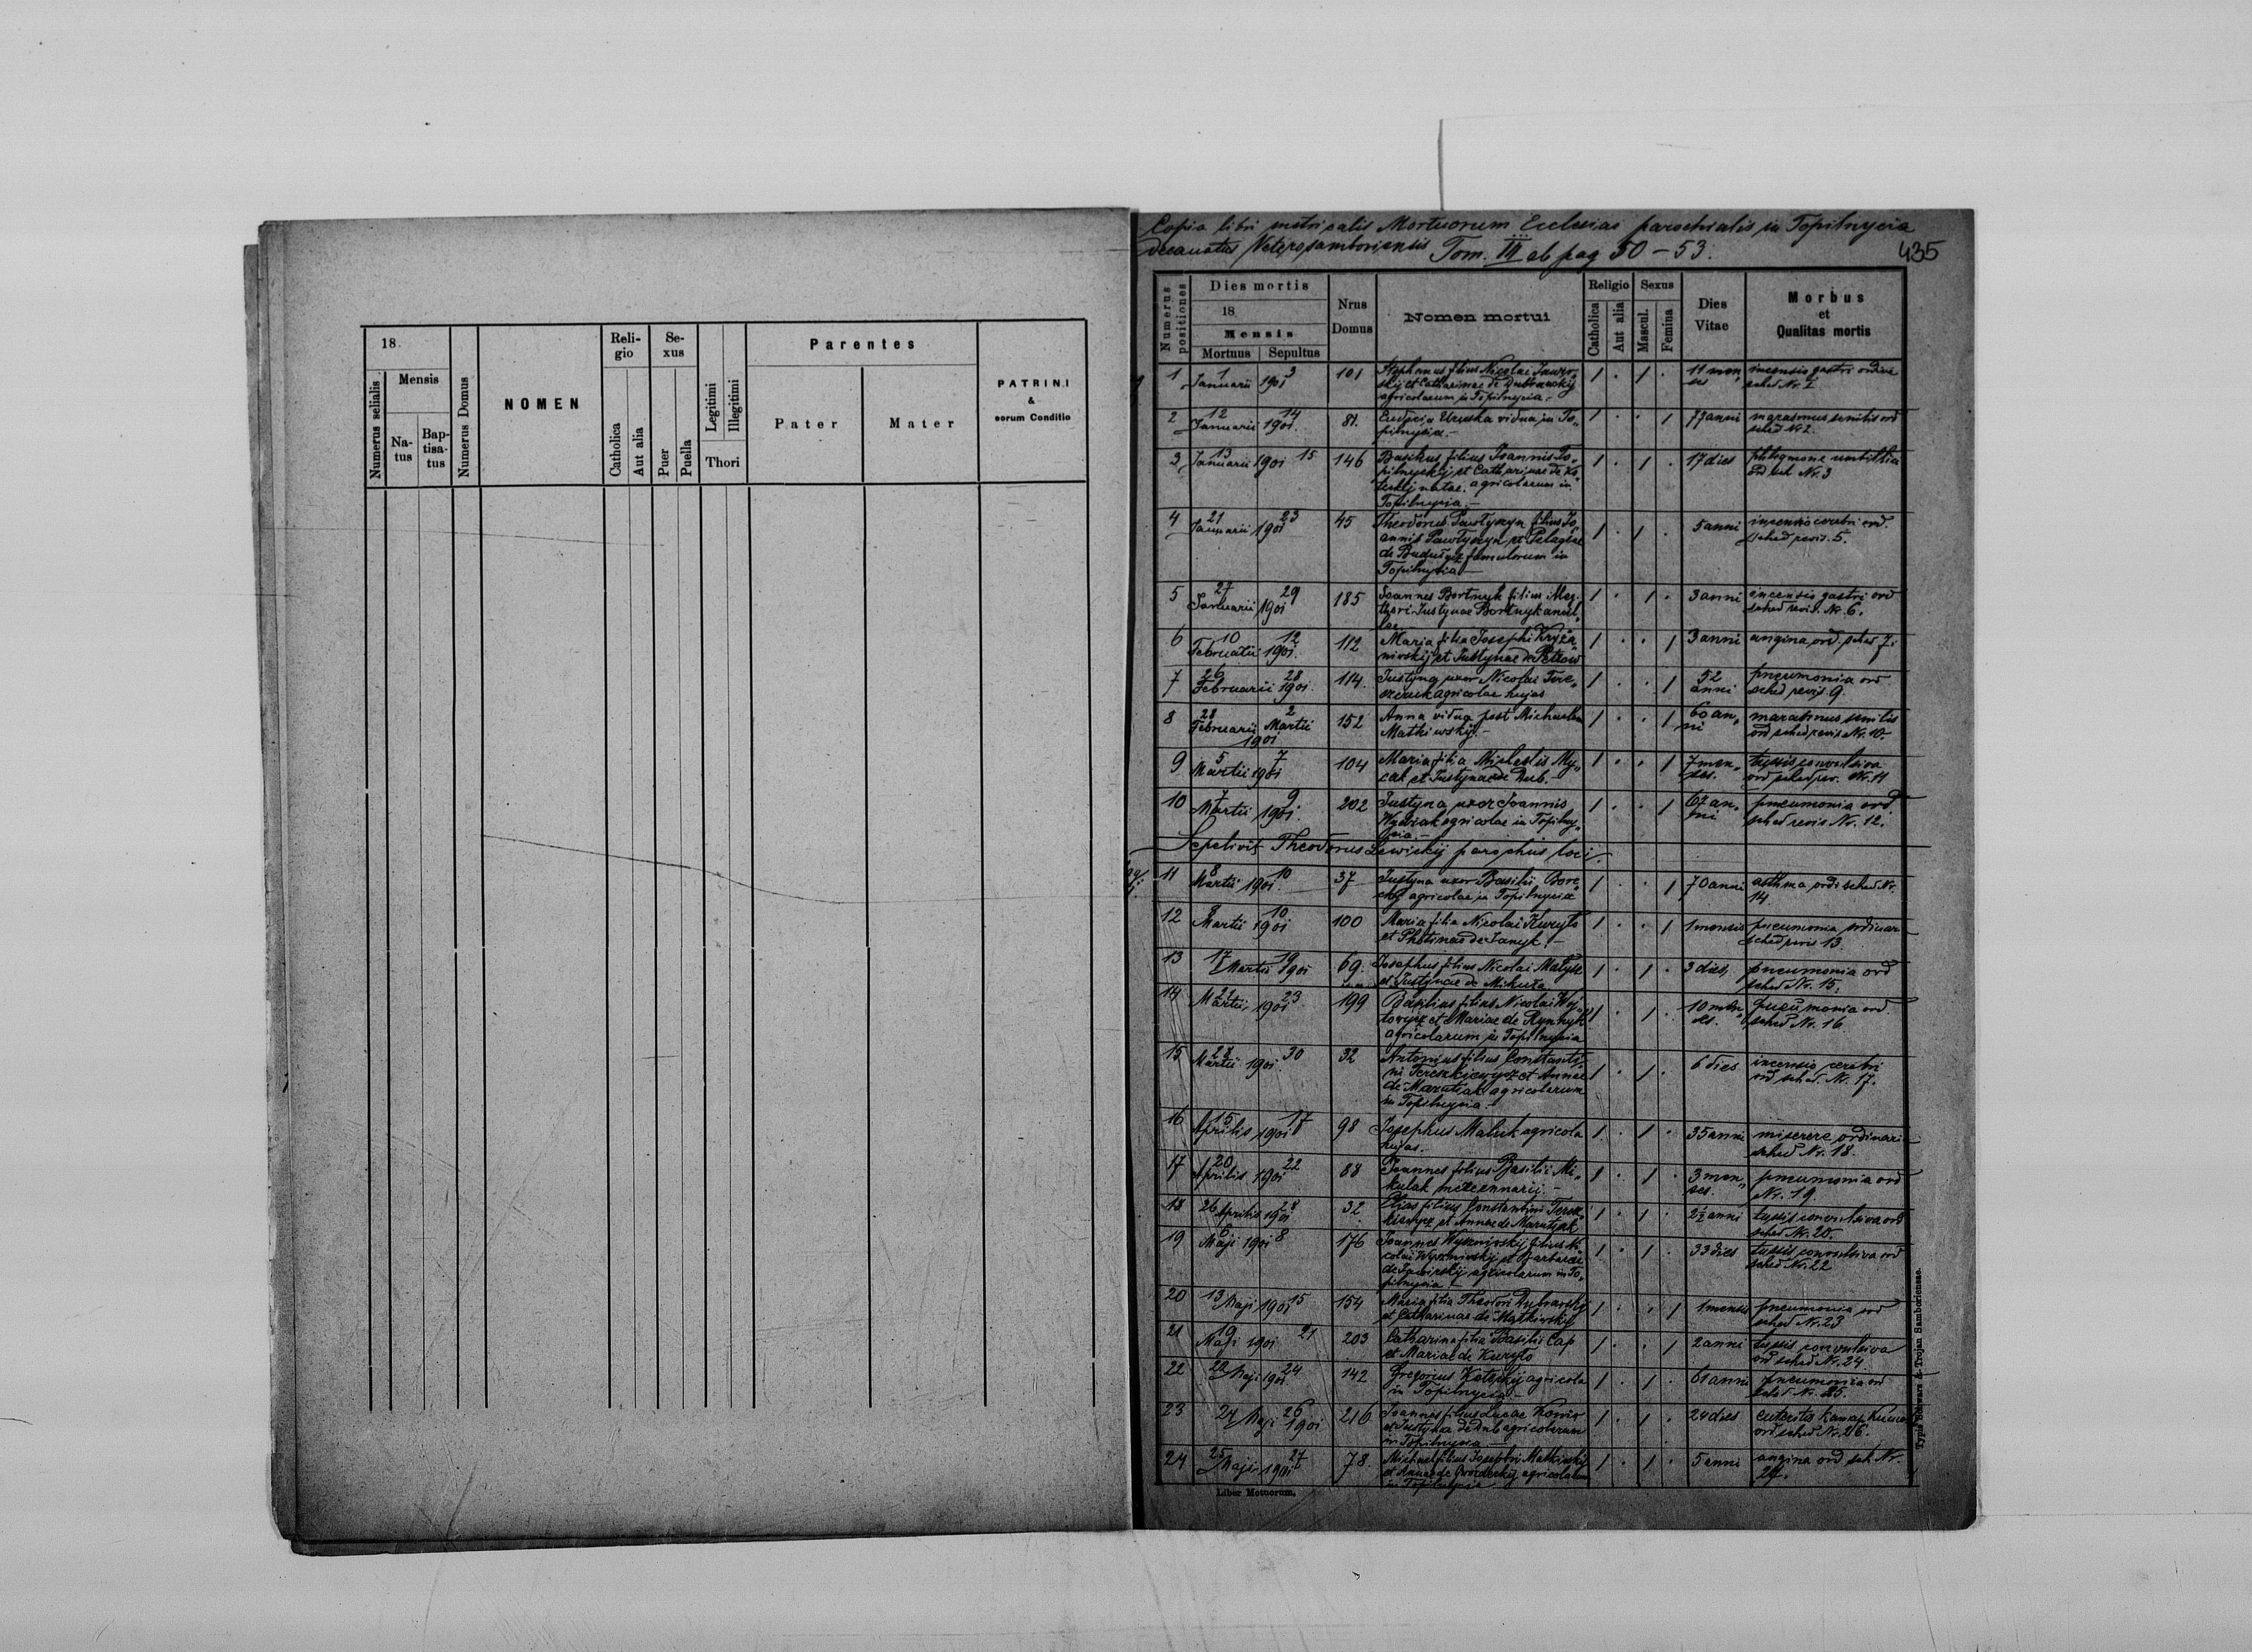 18.
Mensis
Numerus selialis
Na-
tus
Bap-
tisa-
tus
Numerus Domus
NOMEN
Reli-
gio
Catholica
Aut alia
Se-
xus
Puer
Puella
Legitimi
Illegitimi
Thori
Parentes
Pater
Mater
PATRINI
&
eorum Conditio
Copia libri metricalis Mortuorum Ecclesiae parochialis in Topilnycia
decanatus Veterosamboriensis Tom. III ab pag 50-53.
435
Numerus
positiones
Dies mortis
18
Mensis
Mortuus Sepultus
Nrus
Domus
Nomen mortui
Religio
Catholica
Aut alia
Sexus
Mascul.
Femina
Dies
Vitae
Morbus
et
Qualitas mortis
1 1 Januarii 1901 3 101 Stephanus filius Nicolae Jawor„ 1 · 1 · 11 men„ incensio gastri ordina
skij et Catharinae de Dubrawskij ses sched Nr. 1
agricolarum in Topilnycia.-
2 12 Januarii 1901 14 81. vidua in To„ 1 · · 1 77 anni marasmus senilis ord
pilnycia.- sched № 2.
3 13 Januarii 1901 15 146 Basilius filius Joannis To„ 1 · 1 · 17 dies phlegmone umbilici
pilnyckij et Catharinae de Ko„ ord sch Nr. 3
teckij natae. agricolarum in
Topilnycia.-
4 21 Januarii 1901 23 45 Theodorus Pawłyszyn filius Jo„ 1 · 1 · 5 anni incensio cerebri ord.
annis Pawłyszyn et Pelagiae sched revis. 5.
de famulorum in
Topilnycia
5 27 Januarii 1901 29 185 Joannes Bortnyk filius illeg.- 1 · 1 · 3 anni incensio gastri ord
thori Justynae Bortnyk ancil„ sched revis. Nr. 6.
lae
6 10 Februarii 1901. 12 112 Maria filia Josephi 1 · · 1 3 anni angina ord. sched 7.
et Justynae de Petrow
7 26 Februarii 1901. 28 114. Justyna uxor Nicolai Tere„ 1 · · 1 52 pneumonia ord
agricolae hujas anni sched revis 9.
8 28 Februarii 2 Martii 152 Anna vidua post Michaelem 1 · · 1 60 an„ marasmus senilis
1901 Matkiwskij.- ni ord sched revis Nr. 10.
9 5 Martii 1901 7 104 Maria filia Michaelis My„ 1 · · 1 7 men„ tussis convulsiva
cak et Justynae de Dub.- ses. ord sched rev. Nr. 11
10 7 Martii 1901. 9 202 Justyna uxor Joannis 1 · · 1 67 an„ pneumonia ord
agricolae in Topilny„ ni sched revis Nr. 12.
cia.-
Sepelivit Theodorus Lewickij parochus loci.
11 8 Martii 1901. 10 37 Justyna uxor Basilii Bore„ 1 · · 1 70 anni asthma ordi sched Nr.
ckij agricolae in Topilnycia 14
12 8 Martii 1901 10 100 Maria filia Nicolai Kuryło 1 · · 1 1 mensis pneumonia ordinar
et Photinae de Janyk.- sched revis 13.
13 17 Martii 1901 19 69. Josephus filius Nicolai 1 · 1 · 3 dies, pneumonia ord
et Justynae de Mikuła sched Nr. 15.
14 22 Martii 1901 23 199 Basilius filius Nicolai Woj„ 1 · 1 · 10 men„ pneumonia ord.
towycz et Mariae de Rymnyk ses. sched Nr. 16
agricolarum in Topilnycia
15 28 Martii 1901. 30 32 Antonius filius Constanti„ 1 · 1 · 6 dies incensio cerebri
ni Tereszkiewycz et Annae ord sched. Nr. 17.
de Marutjak agricolarum
in Topilnycia.-
16 15 Aprilis 1901 17 98 Josephus agricola 1 · 1 · 35 anni miserere ordinari
hujas.- sched Nr. 18.
17 20 Aprilis 1901 22 88 Joannes filius Basilii Mi„ 1 · 1 · 3 men„ pneumonia ord
kulak mercennarij.- ses. Nr. 19.
18 26 Aprilis 1901 28 32 Elias filius Constantini Teresz„ 1 · 1 · 2½ anni tussis convulsiva ord
kiewycz et Annae de Marutjak sched Nr. 20.
19 6 Maji 1901 8 176 Joannes filius Ni„ 1 · 1 · 33 dies tussis convulsiva ord
colai et Barbarae sched Nr. 22
de Jaworskij agricolarum in To„
pilnycia
20 13 Maji 1901 15 154 Maria filia Theodori Dubrawskij 1 · · 1 1 mensis pneumonia ord
et Catharinae de Matkiwskij sched Nr. 23
21 19 Maji 1901 21 203 Catharina filia Basilii Cap 1 · · 1 2 anni tussis convulsiva
et Mariae de Kuryło ord sched Nr. 24.
22 22 Maji 1901 24 142 Gregorius Koteckij agricola 1 · 1 · 61 anni pneumonia ord
in Topilnycia.- sched Nr. 25.
23 24 Maji 1901 26 216 Joannes filius Lucae 1 · 1 · 24 dies enteritis
et Justyna de Dub agricolarum ord sched Nr. 26.
in Topilnycia
24 25 Maji 1901 27 78. Michael filius Josephi Matkiwskij 1 · 1 · 5 anni angina ord sch. Nr.
et Annae de agricolarum 27.
in Topilnycia
Liber Motuorum.
Typis Schwarz & Trojan Samboriensae.